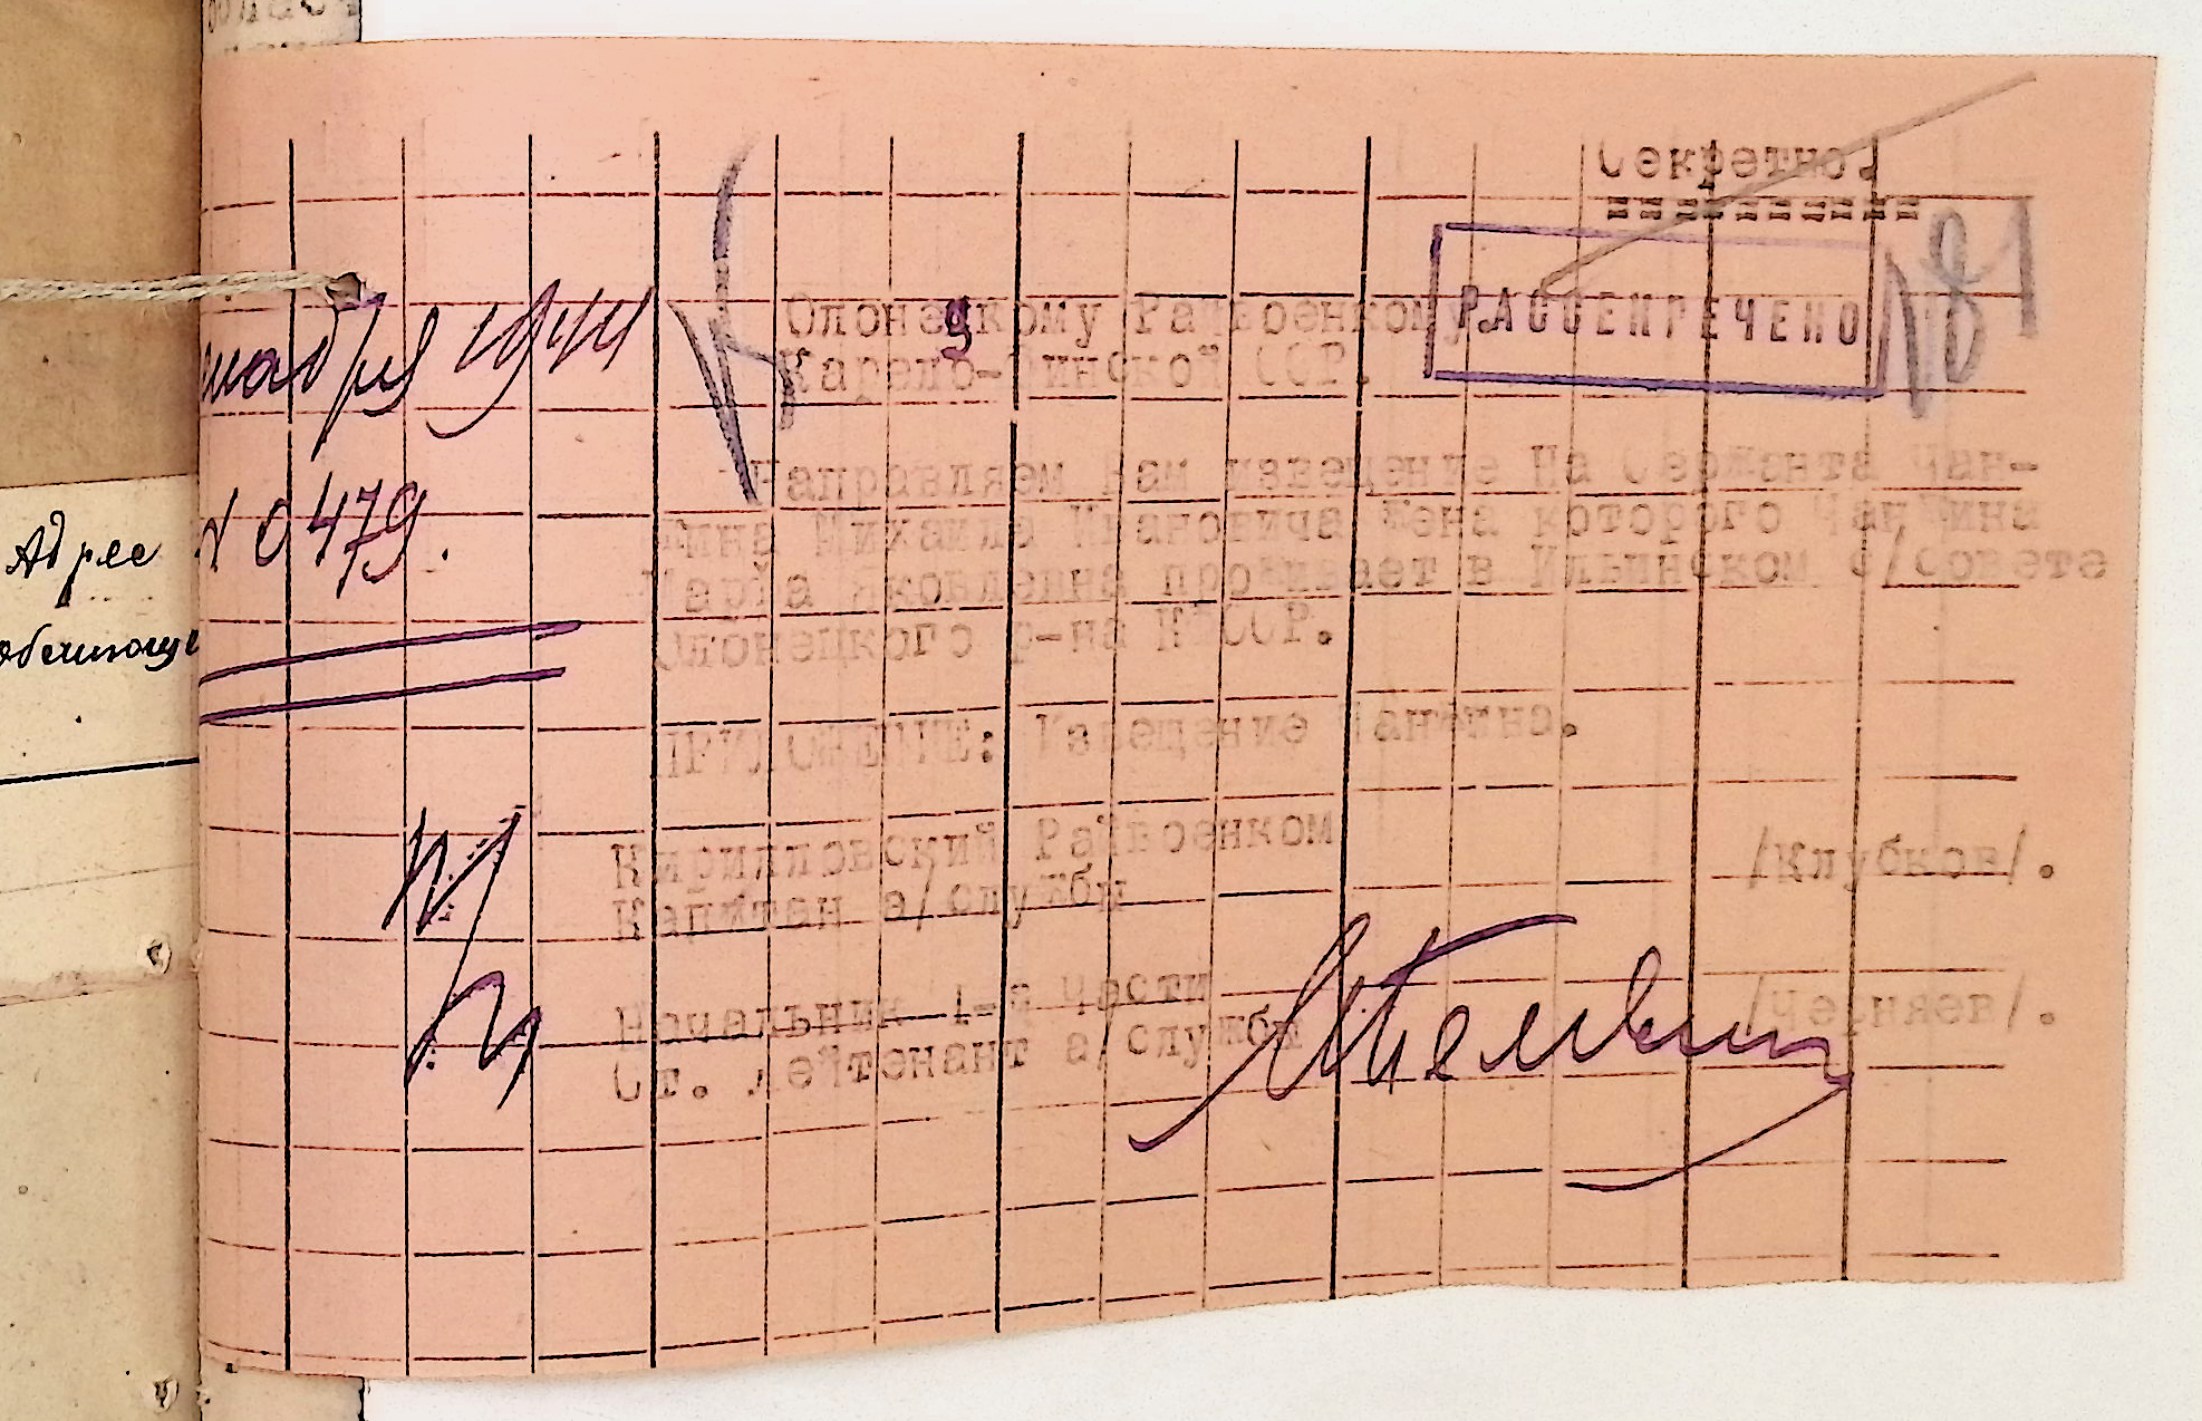 Секретно.
РАССЕКРЕЧЕНО
Олонецкому Райвоенкому.
Карело-Финской ССР.
№ 0479.
Направляем Вам извещение На Сержанта Чан-
Михаила Ивановича жена которого
Марфа Яковлевна проживает в Ильинском с/совете
Олонецкого р-на КФССР.
ПРИЛОЖЕНИЕ: Извещение
Кирилловский Райвоенком
Капитан а/службы
/Клубков/.
Начальник 1-й части
Ст. Лейтенант а/службы
/Черняев/.
Адрес